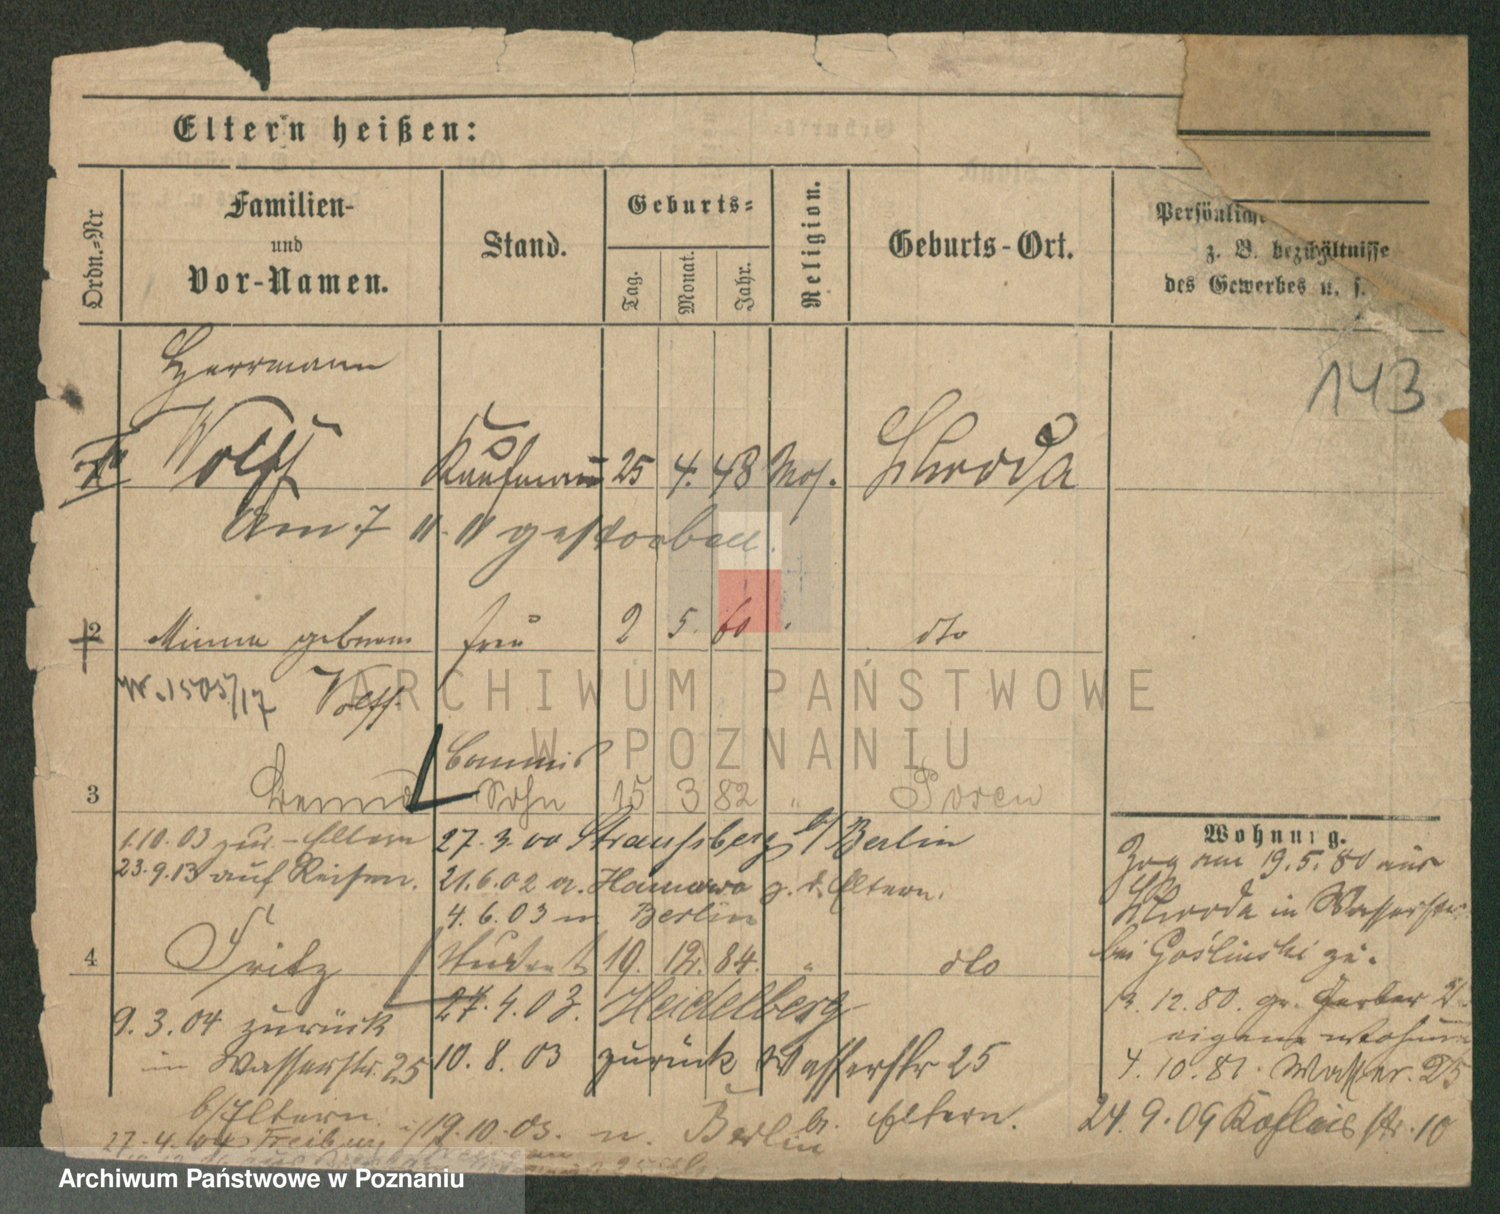 Eltern heißen:
Ordn.=Nr
Familien-
und
Vor-Namen.
Stand.
Geburts=
Tag.
Monat.
Jahr.
Religion.
Geburts-Ort.
Persönliche
z. B.
des Gewerbes u. s.
143
Herrmann
Wolff Kaufmann 25 4. 48 Mos. Schroda
Am 7 11. 11 gestorben.
2 Minna geborene Frau 2 5. 60 " dto
Nr. 1505/17 Wolff
Commis
3 Sohn 15 3 82 " Posen
1.10.03 zur. - Eltern 27.3.00 Straussberg b/Berlin
23.9.13 auf Reisen. 21.6.02 a. z. d. Eltern.
4.6.03 n Berlin
4 Fritz Student 19. 12. 84. " dto
27.4.03. Heidelberg
9.3.04 zurück
in Wasserstr. 25 10.8.03 zurück Wasserstr 25
b/Eltern.
27.4.04 Freiburg i/ 19.10.03. n. Berlin b. Eltern.
Wohnung.
Zog am 19.5.80 aus
Schroda in Wasserstr.
bei Goślinski zu.
12.80. gr. Gerber
eigene Wohnung
4.10.81. Wasser. 25
24.9.09 str. 10
ARCHIWUM PAŃSTWOWE
W POZNANIU
Archiwum Państwowe w Poznaniu